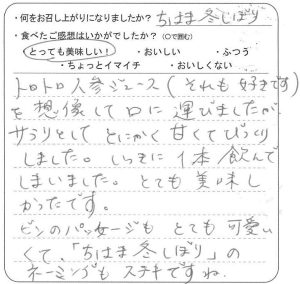 ・何をお召し上がりになりましたか？ ちはま冬しぼり
・食べたご感想はいかがでしたか？（○で囲む）
・とっても美味しい！ ・おいしい ・ふつう
・ちょっとイマイチ ・おいしくない
トロトロ人参ジュース（それも好きです）
を想像して口に運びましたが
サラりとして とにかく甘くてびっくり
しました。いっきに1本飲んで
しまいました。とても美味し
かったです。
ビンのパッケージも とても可愛い
くて、「ちはま冬しぼり」の
ネーミングも ステキですね.